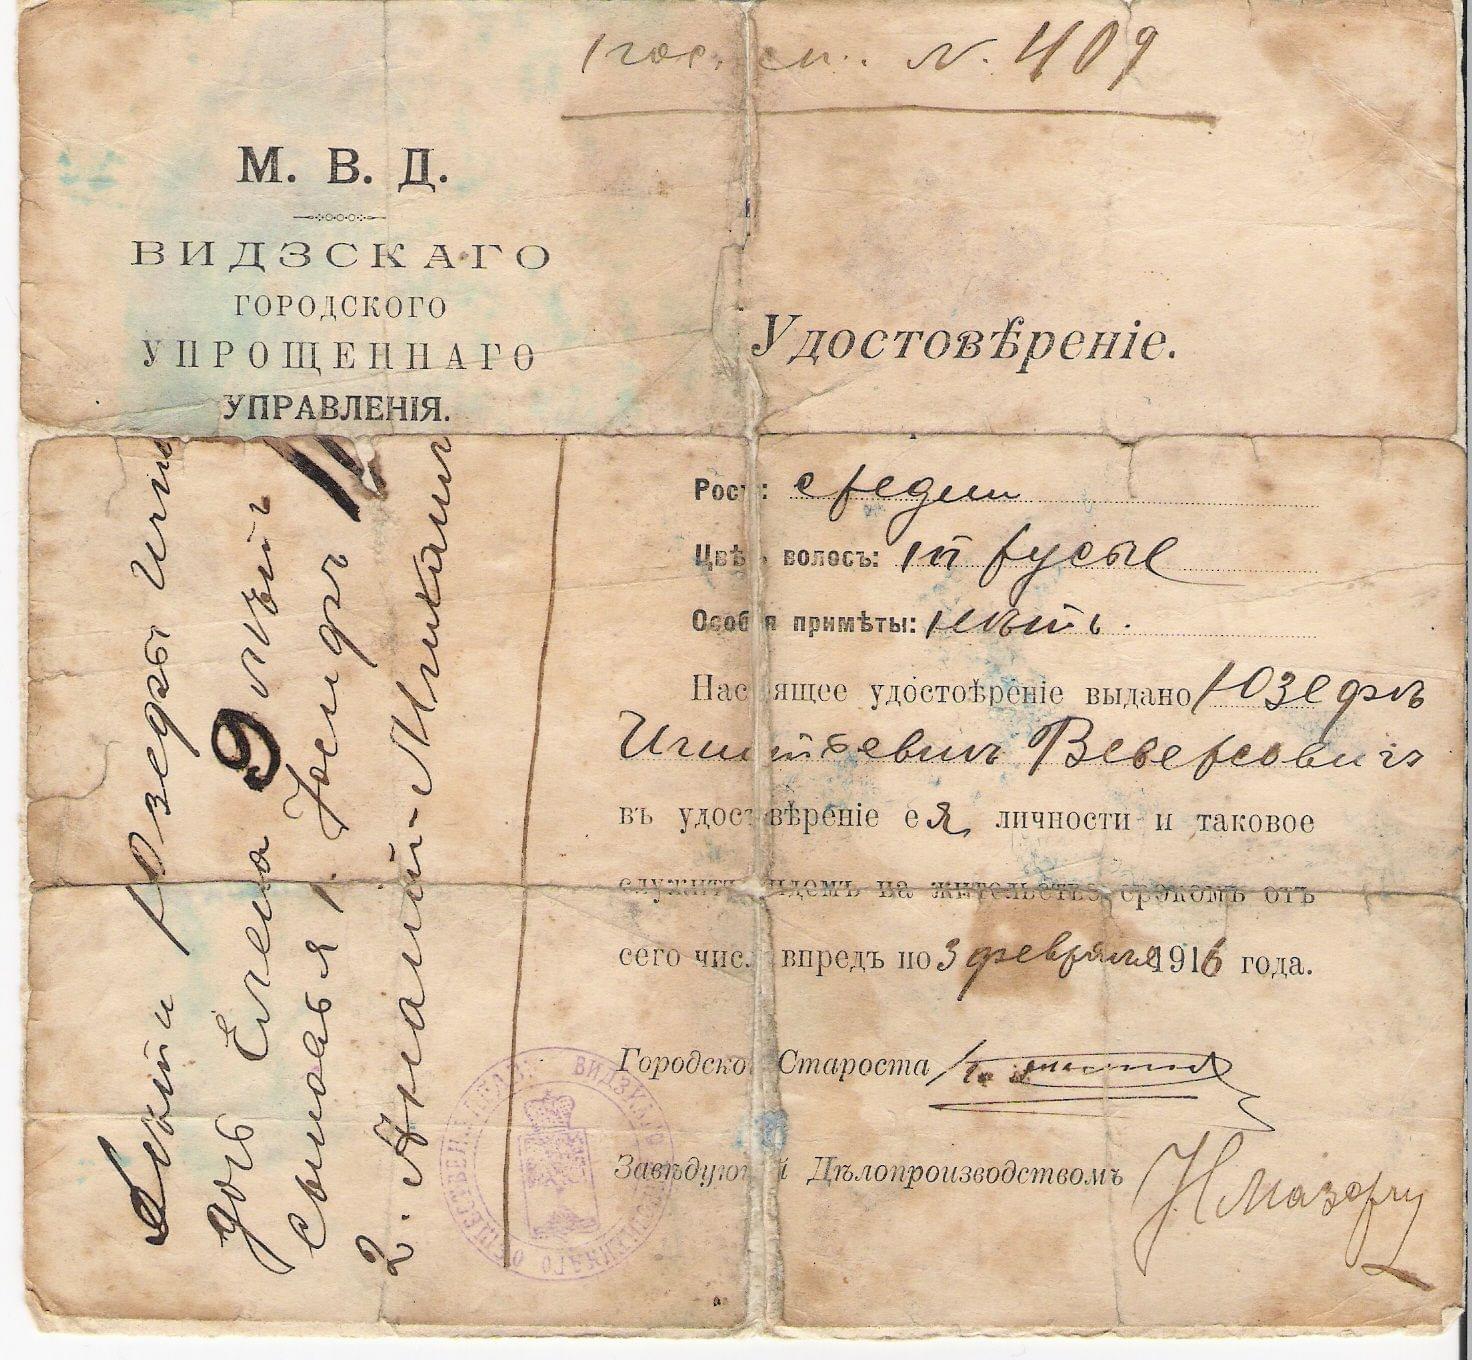 N. 409
М. В. Д.
ВИДЗСКАГО
ГОРОДСКОГО
УПРОЩЕННАГО
УПРАВЛЕНІЯ.
Удостовѣреніе.
Рост: средній
Цвѣ волосъ: русые
Особ я примѣты: нѣтъ.
Нас ящее удостоѣреніе выдано Юзефѣ
Игнатьевнѣ Веверсовичъ
въ удостовѣреніе ея личности и таковое
служитъ видомъ на жительство срокомъ отъ
сего числ впредь по 3 февраля 1916 года.
Городско Староста
Завѣдую й Дѣлопроизводствомъ
Н Мазорчу
Дѣти Юзефы Игн
дочь Елена 9 лѣтъ
сыновья 1. Іосифъ 11
2. Анатолій-Михаилъ